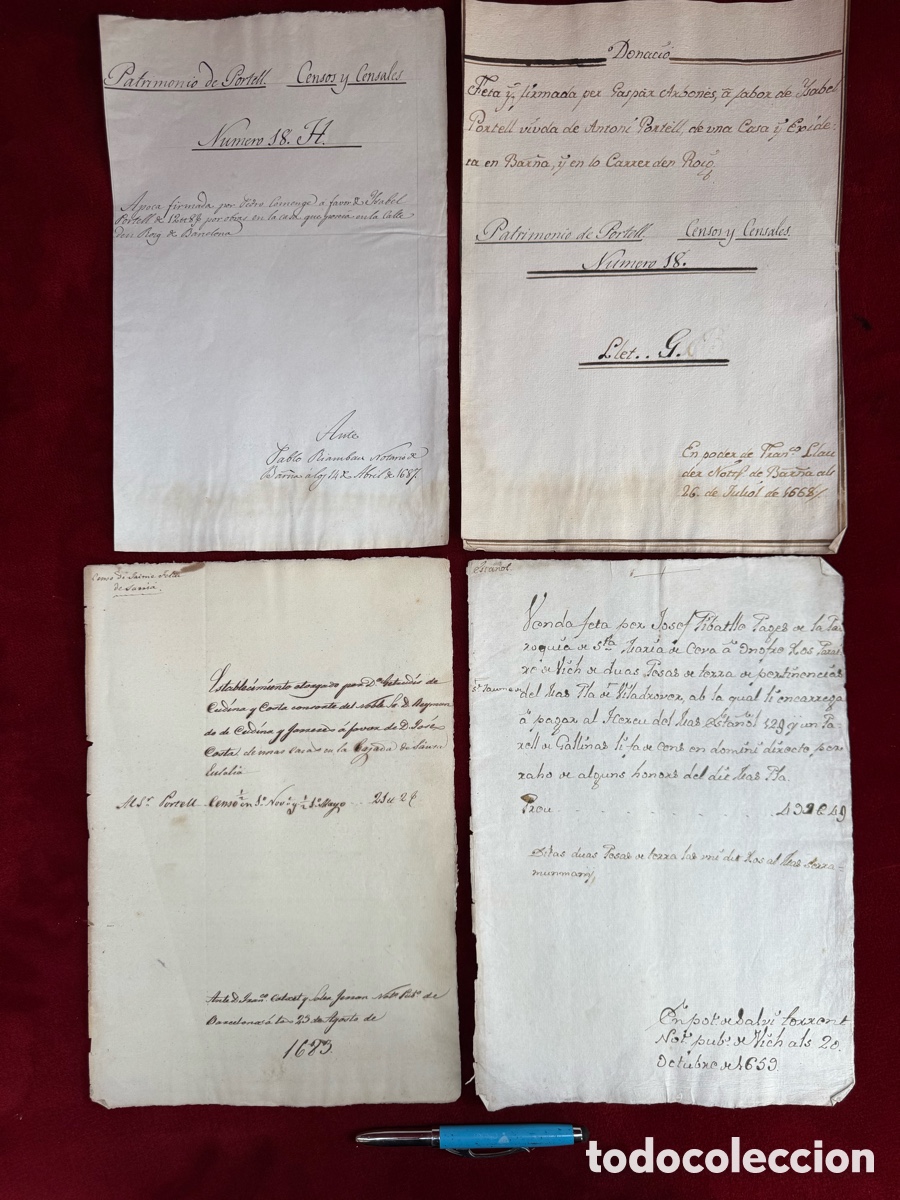 Patrimonio de Portell. Censos y Censales
Numero 18. H.
Apoca firmada por Pedro Comenge a favor de Ysabel
Portell de por obras en la casa que poseia en la Calle
den Roig de Barcelona
Ante
Pablo Riambau Notario de
Barña á los 14 de Abril de 1687.
Donació
Feta y firmada per Gaspar Arbones, a fabor de Ysabel
Portell viuda de Antoni Portell, de una Casa y Exide-
ra en Barña, y en lo Carrer den Roig
Patrimonio de Portell. Censos y Censales.
Numero 18.
Llet.. G.
En poder de Franco. Llau
der Nott. de Barña als
26. de Juliól de 1668
Censo de Jaime
de Sarria.
Establecimiento otorgado por Da. de
Cudina y Costa consorte del noble Sr. D.
de de Cudina y á favor de D. José
Costa de unas casas en la de Santa
Eulalia
M.Sr. Portell Censo en 1o. Novc. y 1o. Mayo ..
Ante D. Notco. Pubco. de
Barcelona á los 23 de Agosto de
1689.
Estañol.
Venda feta per Josef Ribatlla Pages de la Par
roquia de Sta Maria de a Onofre
de Vich de duas Posas de terra de pertinencias
St. Jaume del Mas Pla de Viladrover, ab la qual li encarrega
a pagar al Hereu del Mas Estañol y un Pa-
rell de Gallinas li fa de cens en domini directo per
raho de alguns honors del dit Mas Pla.
Preu . . . . . . .
Ditas duas Posas de terra las uni dit Ros al Mas Serra-
munmany,
En pod. de Salvi Torrent
Not. pub. de Vich als 20.
Octubre de 1659.
todocoleccion